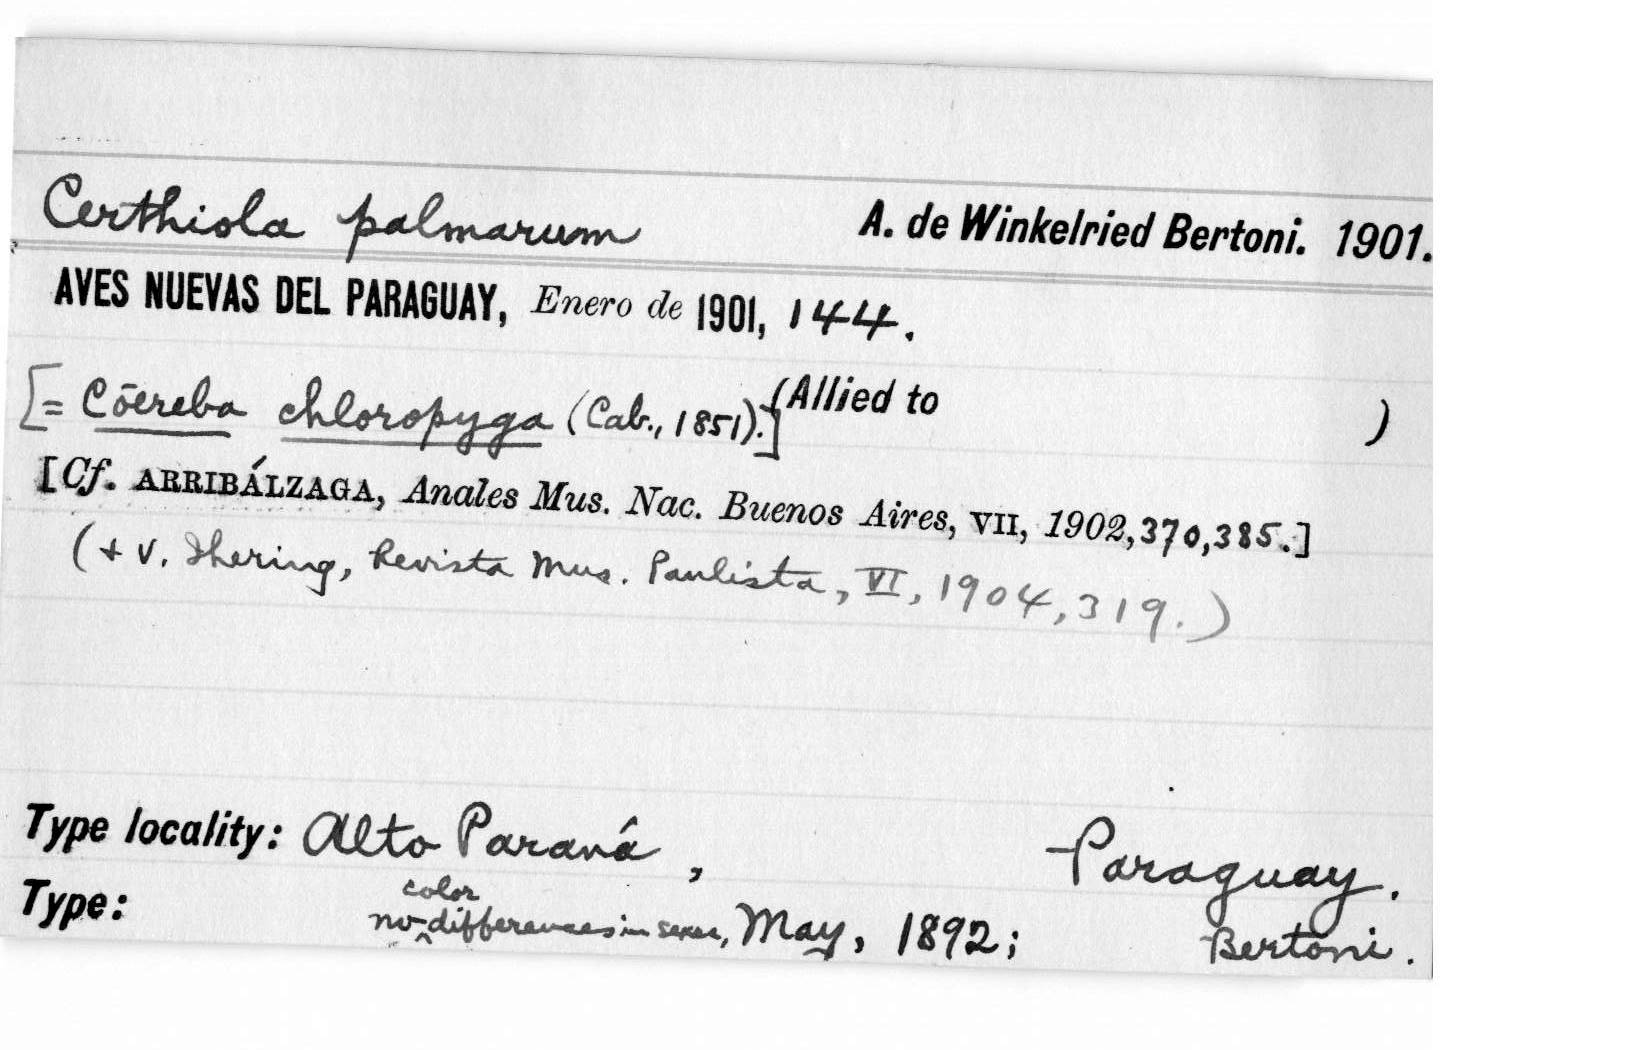 Certhiola palmarum A. de Winkelried Bertoni. 1901.
AVES NUEVAS DEL PARAGUAY, Enero de 1901, 144.
[= Cōereba chloropyga (Cab., 1851).] (Allied to )
[Cf. ARRIBÁLZAGA, Anales Mus. Nac. Buenos Aires, VII, 1902, 370, 385.]
(+ v. Ihering, Revista Mus. Paulista, VI, 1904, 319.)
Type locality: Alto Paraná, Paraguay.
color
Type: no ‸ differences in sexes, May, 1892; Bertoni.